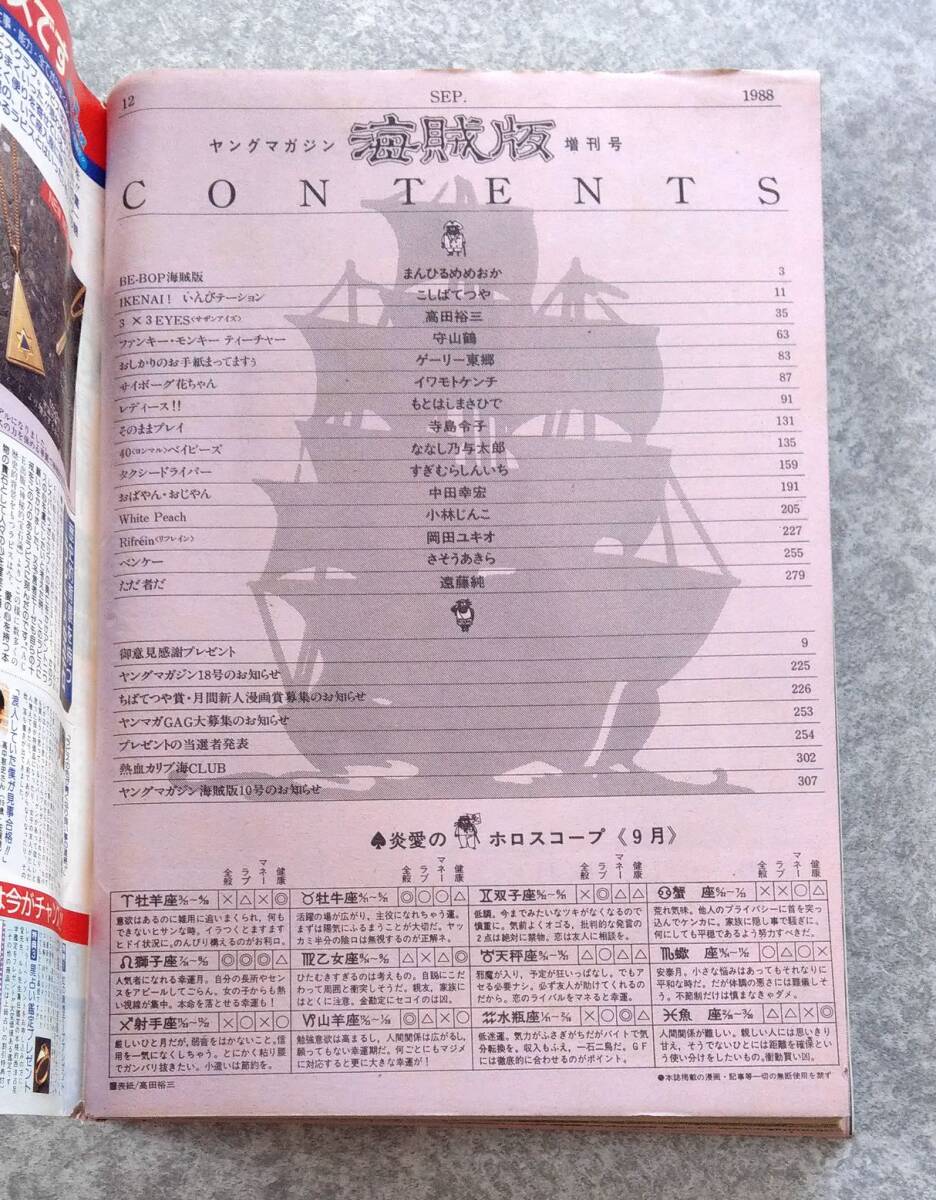 12 SEP. 1988
ヤングマガジン 海賊版 増刊号
CONTENTS
BE-BOP海賊版 まんひるめめおか 3
IKENAI! いんびテーション こしばてつや 11
3×3EYES〈サザンアイズ〉 高田裕三 35
ファンキー・モンキー ティーチャー 守山鶴 63
おしかりのお手紙まってますぅ ゲーリー東郷 83
サイボーグ花ちゃん イワモトケンチ 87
レディース!! もとはしまさひで 91
そのままプレイ 寺島令子 131
40〈ヨンマル〉ベイビーズ ななし乃与太郎 135
タクシードライバー すぎむらしんいち 159
おばやん・おじやん 中田幸宏 191
White Peach 小林じんこ 205
Rifréin〈リフレイン〉 岡田ユキオ 227
ベンケー さそうあきら 255
ただ者だ 遠藤純 279
御意見感謝プレゼント 9
ヤングマガジン18号のお知らせ 225
ちばてつや賞・月間新人漫画賞募集のお知らせ 226
ヤンマガGAG大募集のお知らせ 253
プレゼントの当選者発表 254
熱血カリブ海CLUB 302
ヤングマガジン海賊版10号のお知らせ 307
♠炎愛の ホロスコープ《9月》
全般 ラブ マネー 健康
全般 ラブ マネー 健康
全般 ラブ マネー 健康
全般 ラブ マネー 健康
♈牡羊座 ×△×◎
意欲はあるのに雑用に追いまくられ、何も
できないヒサンな時。イラつくとますます
ヒドイ状況に。のんびり構えるのがお利口。
♉牡牛座 ◎○○△
活躍の場が広がり、主役になれちゃう運。
まずは陽気にふるまうことが大切だ。ヤッ
カミ半分の陰口は無視するのが正解ネ。
♊双子座 ×◎△△
低調。今までみたいなツキがなくなるので
慎重に。気前よくオゴる、批判的な発言の
2点は絶対に禁物。恋は友人に相談を。
♋蟹座 ××○△
荒れ気味。他人のプライバシーに首を突っ
込んでケンカに。家族に隠し事で騒ぎに。
何にしても平穏であるよう努力すべきだ。
♌獅子座 ◎◎◎△
人気者になれる幸運月。自分の長所やセン
スをアピールしてごらん。女の子からも熱
い視線が集中。本命を落とせる幸運も!
♍乙女座 △×△◎
ひたむきすぎるのは考えもの。自説にこだ
わって周囲と衝突しそうだ。親友、家族に
はとくに注意。金勘定にセコイのは凶。
♎天秤座 △○△△
邪魔が入り、予定が狂いっぱなし。でもア
セる必要ナシ。必ず友人が助けてくれるの
だから。恋のライバルをマネると幸運。
♏蠍座 ○△○×
安泰月。小さな悩みはあってもそれなりに
平和な時だ。だが体調の悪さには難儀しそ
う。不節制だけは慎まなきゃダメ。
♐射手座 ×○×○
厳しいひと月だが、弱音をはかないこと。信
用を一気になくしちゃう。とにかく粘り腰
でガンバリ抜きたい。小遣いは節約を。
♑山羊座 ◎△○○
勉強意欲は高まるし、人間関係は広がるし、
願ってもない幸運期だ。何ごとにもマジメ
に対応すると更に大きな幸運が!
♒水瓶座 ××◎△
低迷運。気力がふさぎがちだがバイトで気
分転換を。収入もふえ、一石二鳥だ。GF
には徹底的に合わせるのがポイント。
♓魚座 △△×◎
人間関係が難しい。親しい人には思いきり
甘え、そうでないひとには距離を確保と
いう使い分けをしたいもの。衝動買い凶。
■表紙/高田裕三
●本誌掲載の漫画・記事等一切の無断使用を禁ず
「浪人していた僕が見事合格!!」